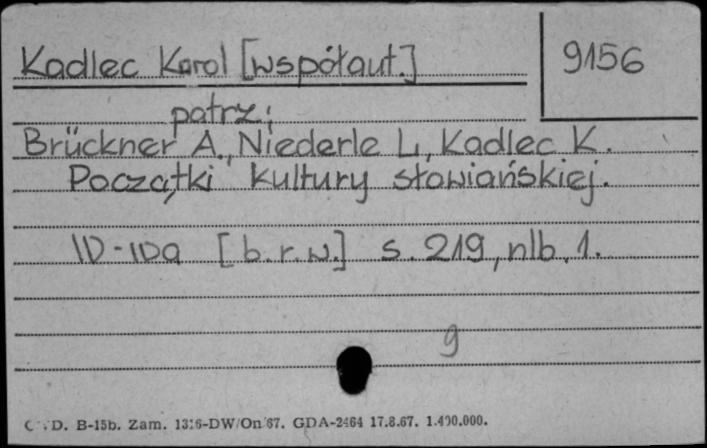 Kadlec Karol [współaut.]
9156
patrz:
Brückner A., Niederle L., Kadlec K.
Początki kultury słowiańskiej.
[b.r.w.] s. 219, nlb. 1.
9
D. B-15b. Zam. 1316-DW/On/67. GDA-2464 17.8.67. 1.400.000.